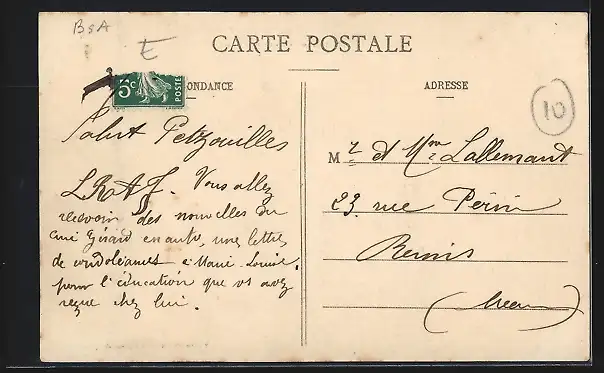 B&A
E
CARTE POSTALE
5c
POSTE
ONDANCE
ADRESSE
10
Salut Petzouilles
LRAF. Vous allez
recevoir des nouvelles du
curé Gérard en auto, une lettre
de condoléances à Marie-Louise,
pour l'éducation que vs avez
reçue chez lui.
Mr et Mme Lallemant
23, rue Périn
Reims
(Marne)